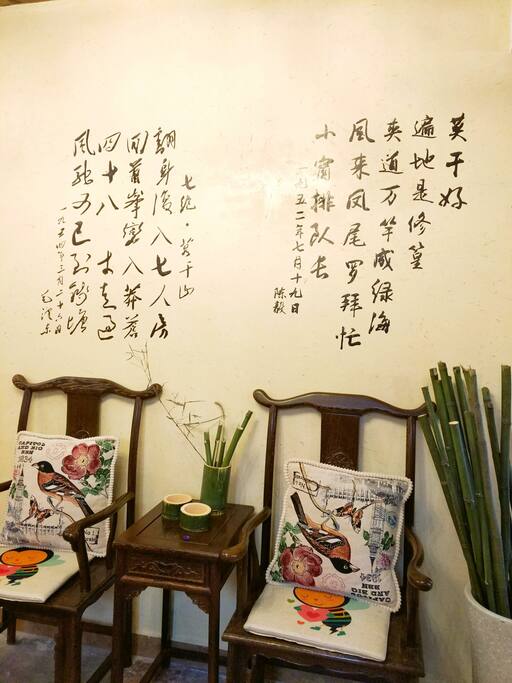 莫干好
遍地是修篁
夹道万竿成绿海
風来凤尾罗拜忙
小窗排队长
一九五二年七月十九日
陈毅
七绝·莫干山
翻身復入七人房
回首峰峦入莽苍
四十八 才走過
風驰又已到钱塘
一九五四年三月二十六日
毛泽东
AND BIG
BEN
BEN
AND BIG